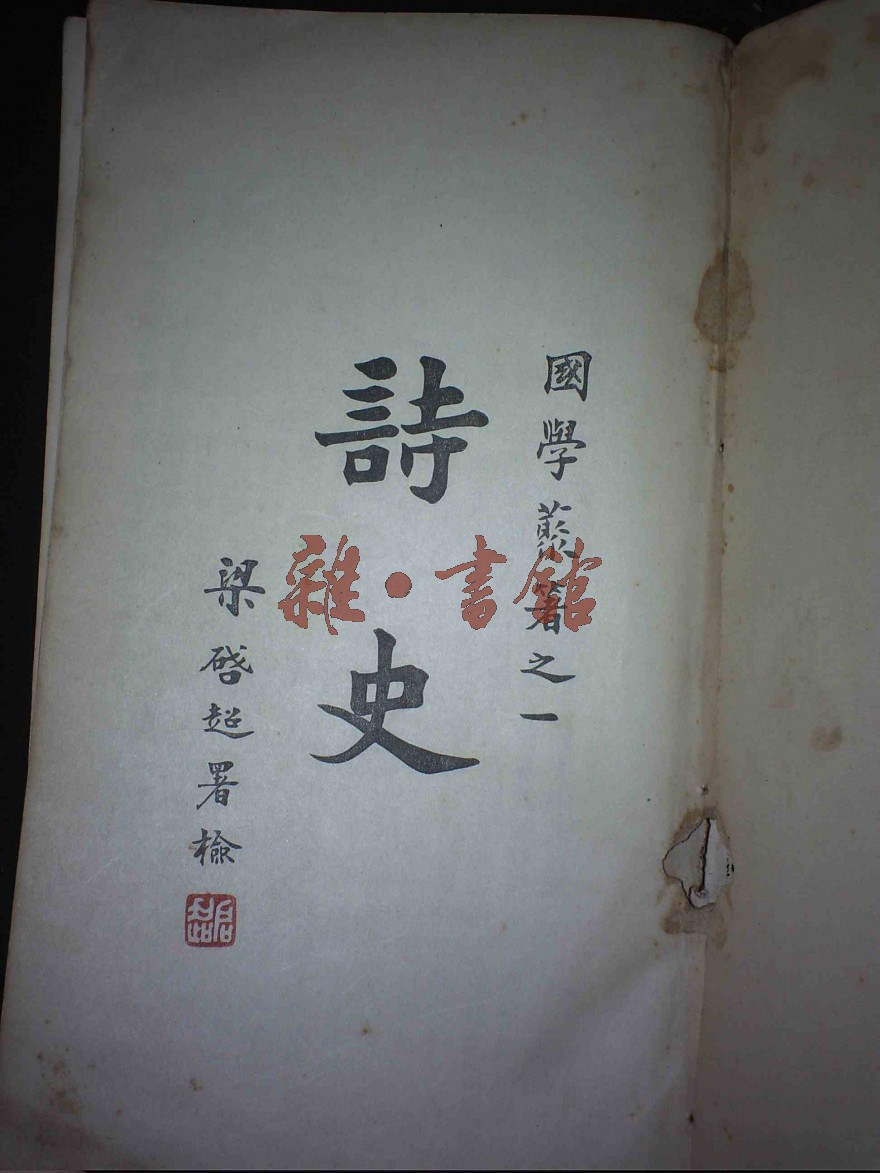 國學叢著之一
詩史
梁啓超署檢
雜·書館